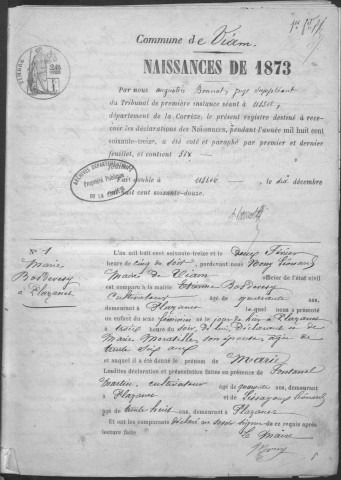 Commune de Viam.
NAISSANCES DE 1873
Par nous Augustin Bonnat, juge suppléant
du Tribunal de première instance séant à Ussel,
département de la Corrèze, le présent registre destiné à rece-
voir les déclarations des Naissances, pendant l'année mil huit cent
soixante-treize, a été coté et paraphé par premier et dernier
feuillet, et contient six
Fait double à Ussel, le dix décembre
mil huit cent soixante-douze.
ARCHIVES DÉPARTEMENTALES
Propriété Publique
DE LA CORRÈZE
N° 1
Marie
à Plazanet
L'an mil huit cent soixante-treize et le deux Février
heure de cinq du soir, pardevant nous
Maire de Viam officier de l'état civil
est comparu à la mairie Étienne
cultivateur âgé de quarante ans,
demeurant à Plazanet lequel nous a présenté
un enfant du sexe féminin né le jour de hier à Plazanet
à trois heures du soir, de lui déclarant et de
Marie son épouse, âgée de
trente six ans
et auquel il a été donné le prénom de Marie
Lesdites déclaration et présentation faites en présence de
Martin, cultivateur âgé de ans, demeurant
à Plazanet et de
âgé de trente huit ans, demeurant à Plazanet
Et ont les comparants déclaré ne savoir signer de ce requis après
lecture faite
Le Maire